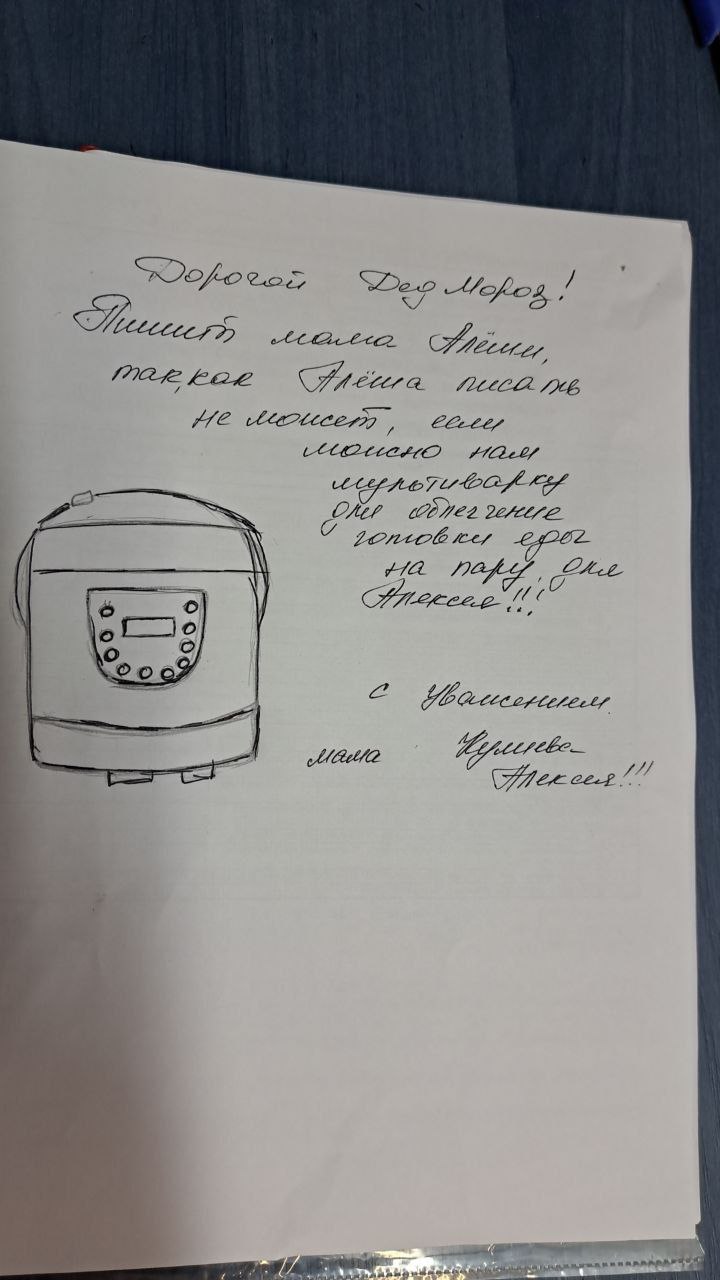 Дорогой Дед Мороз!
Пишить мама Алёши,
так, как Алёша писать
не может, если
можно нам
мультиварку
для облегчение
готовки еды
на пару, для
Алексея!!!
с уважением
мама
Алексея!!!